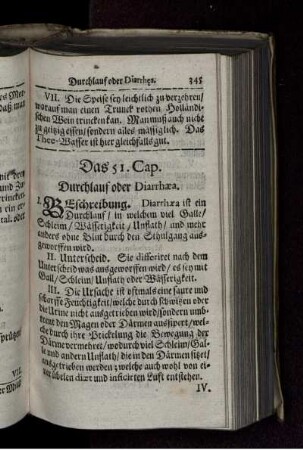 Durchlauf oder Diarrhœa. 345
VII. Die Speise sey leichtlich zu verzehren/
worauf man einen Trunck rothen Holländi-
schen Wein trincken kan. Man muß auch nicht
zu geitzig essen/ sondern alles mässiglich. Das
Thee-Wasser ist hier gleichfalls gut.
Das 51. Cap.
Durchlauf oder Diarrhæa.
I. BEschreibung. Diarrhæa ist ein
Durchlauf/ in welchem viel Galle/
Schleim/ Wässerigkeit/ Unflath/ und mehr
anders ohne Blut durch den Stuhlgang aus-
geworffen wird.
II. Unterscheid. Sie differiret nach dem
Unterscheid was ausgeworffen wird/ es sey mit
Gall/ Schleim/ Unflath oder Wässerigkeit.
III. Die Ursache ist oftmals eine saure und
schorffe Feuchtigkeit/ welche durch schwitzen oder
die Urine nicht ausgetrieben wird
den Magen oder Därmen
durch ihre Prickelung die Bewegung der
Därme vermehret/ wodurch viel Schleim/ Gal-
le und andern Unflath/ die in den Därmen sitzet/
ausgetrieben werden; welche auch wohl von ei-
und inficirten Luft entstehen.
IV.